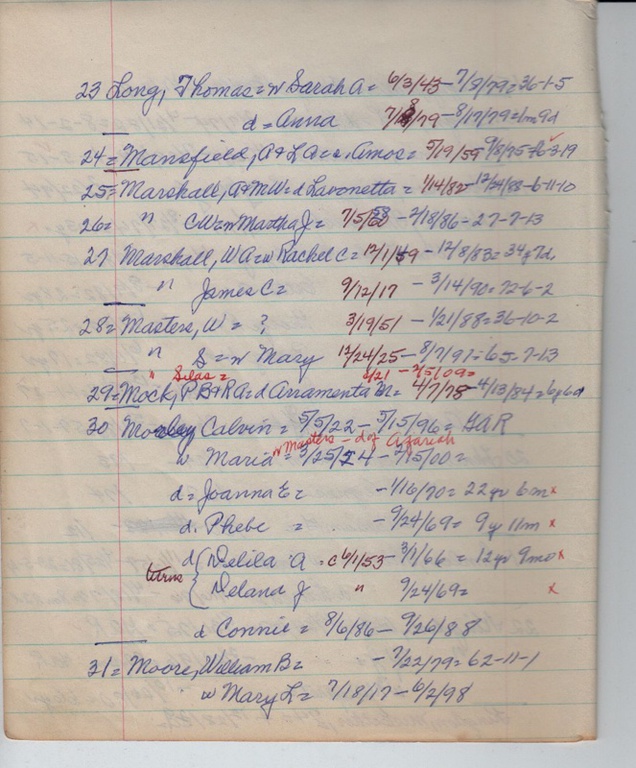 23 Long, Thomas = w Sarah A = 6/3/43 - 7/9/79 = 36-1-5
d = Anna 7/8/79 - 8/17/79 = 1m 9d
24 = Mansfield, A + L A = s. Amos = 5/19/59 9/8/75 - 16-3-19
25 = Marshall, A + MW = d Lavonetta = 1/14/82 - 12/24/88 - 6-11-10
26 = " CW = w Martha J = 7/5/58 - 2/18/86 - 27-7-13
27 Marshall, W A = w Rachel C = 12/1/49 - 12/8/83 = 34y 7d.
" James C = 9/12/17 - 3/14/90 = 72-6-2
28 = Masters, W = ? 3/19/51 - 1/21/88 = 36-10-2
" S = w Mary 12/24/25 - 8/7/91 = 65-7-13
" Silas = /21 - 2/5/09 =
29 = Mock, P B + R A = d Arramenta M = 4/7/78 - 4/13/84 = 6y 6d
30 Calvin = 5/5/22 - 5/15/96 = GAR
w Masters - d of Azariah
w Maria = 3/25/24 - 2/15/00 =
d = Joanna E = - 1/16/70 = 22 yr 6m x
d. Phebe = - 9/24/69 = 9y 11m x
d { Delila A = c 6/1/53 - 3/1/66 = 12 yr 9mo x
twins { Deland J " 9/24/69 = x
d Connie = 8/6/86 - 9/26/88
31 = Moore, William B = - 7/22/79 = 62-11-1
w Mary L = 7/18/17 - 6/2/98